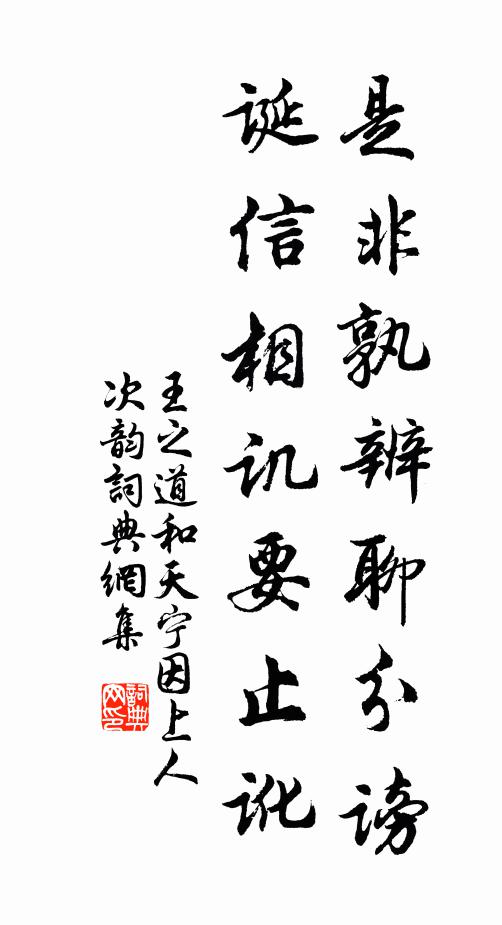 是非孰辨聊分谤
诞信相讥要止讹
王之道和天宁因上人
次韵詞典網集
詞典网印